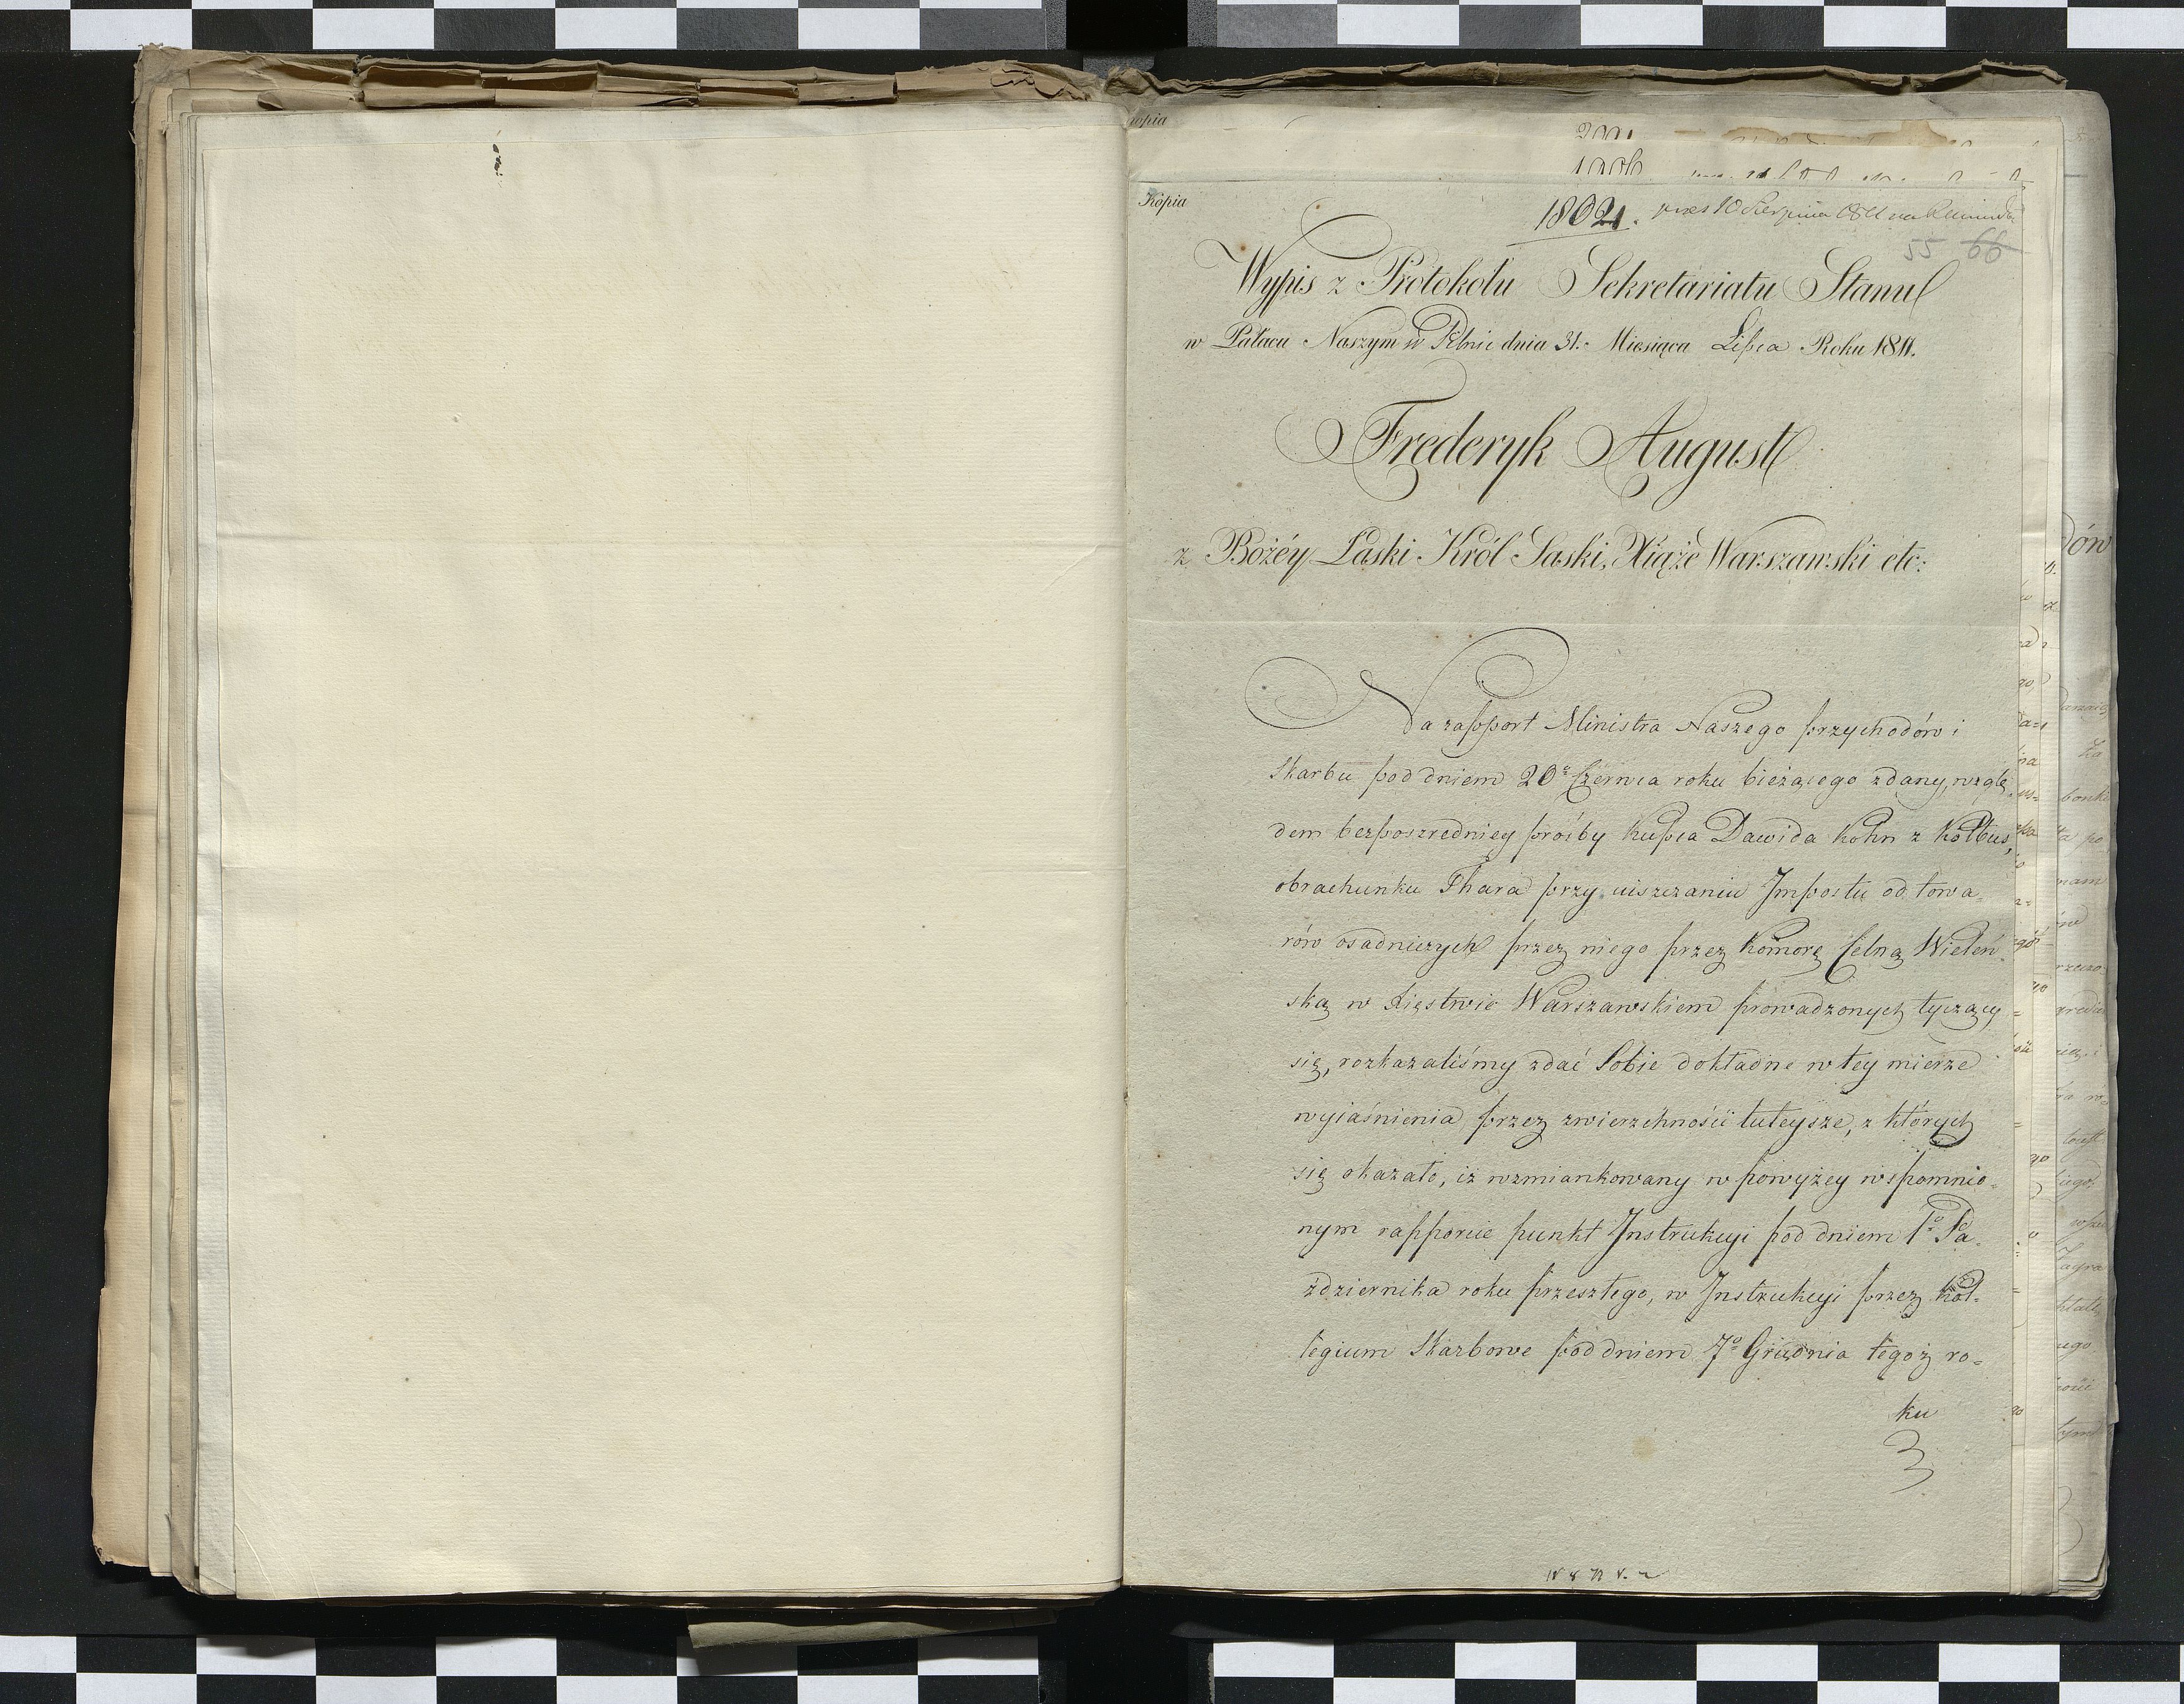 Kopia
1802. pres 10 Sierpnia 1811
55 66
Wypis z Protokołu Sekretariatu Stanu
w Pałacu Naszym w Pelnic dnia 31.- Miesiąca Lipca Roku 1811.
Frederyk August
z Bożéy Łaski Król Saski, Xiąże Warszawski etc:
Na rapport Ministra Naszego przychodów i
Skarbu pod dniem 20º Czerwca roku bieżącego zdany, wzglę
dem bezposzredniey prośby kupca Dawida Kohn z Kotbus,
obrachunku Thara przy uiszczaniu Jmpostu od towa=
rów osadniczych przez niego przez Komorę Celną Wieleń=
ską w Xięstwie Warszawskiem prowadzonych tyczący
się, rozkazaliśmy zdać Sobie dokładne w tey mierze
wyiaśnienia przez zwierzchności tuteysze, z których
się okazało, iż wzmiankowany w powyżey wspomnio=
nym rapporcie punkt Jnstrukcyi pod dniem 1º Pa=
ździernika roku przeszłego, w Jnstrukcyi przez Kol=
legium Skarbowe pod dniem 7º Grudnia tegoż ro=
ku